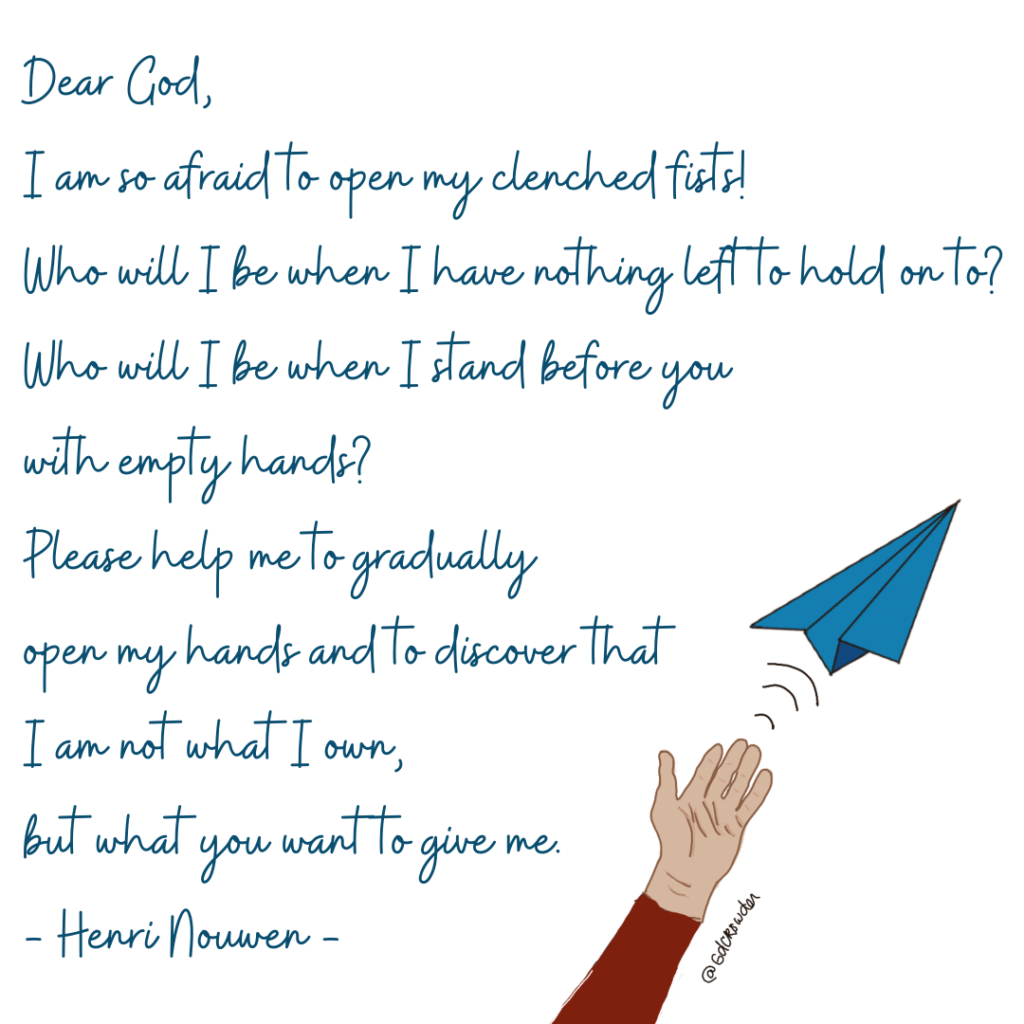 Dear God,
I am so afraid to open my clenched fists!
Who will I be when I have nothing left to hold on to?
Who will I be when I stand before you
with empty hands?
Please help me to gradually
open my hands and to discover that
I am not what I own,
but what you want to give me.
- Henri Nouwen -
@GDCROWDER